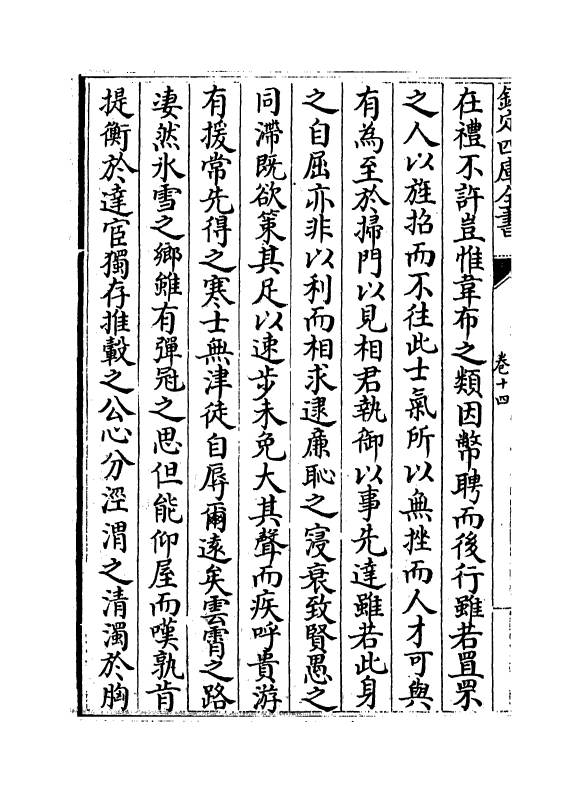 欽定四庫全書
卷十四
在禮不許豈惟韋布之類因幣聘而後行雖若罝罘
之人以旌招而不往此士氣所以無挫而人才可與
有為至於掃門以見相君執御以事先達雖若此身
之自屈亦非以利而相求逮廉恥之寖衰致賢愚之
同滯既欲策其足以速步未免大其聲而疾呼貴游
有援常先得之寒士無津徒自辱爾遠矣雲霄之路
凄然氷雪之鄉雖有彈冠之思但能仰屋而嘆孰肯
提衡於達宦獨存推轂之公心分涇渭之清濁於胸